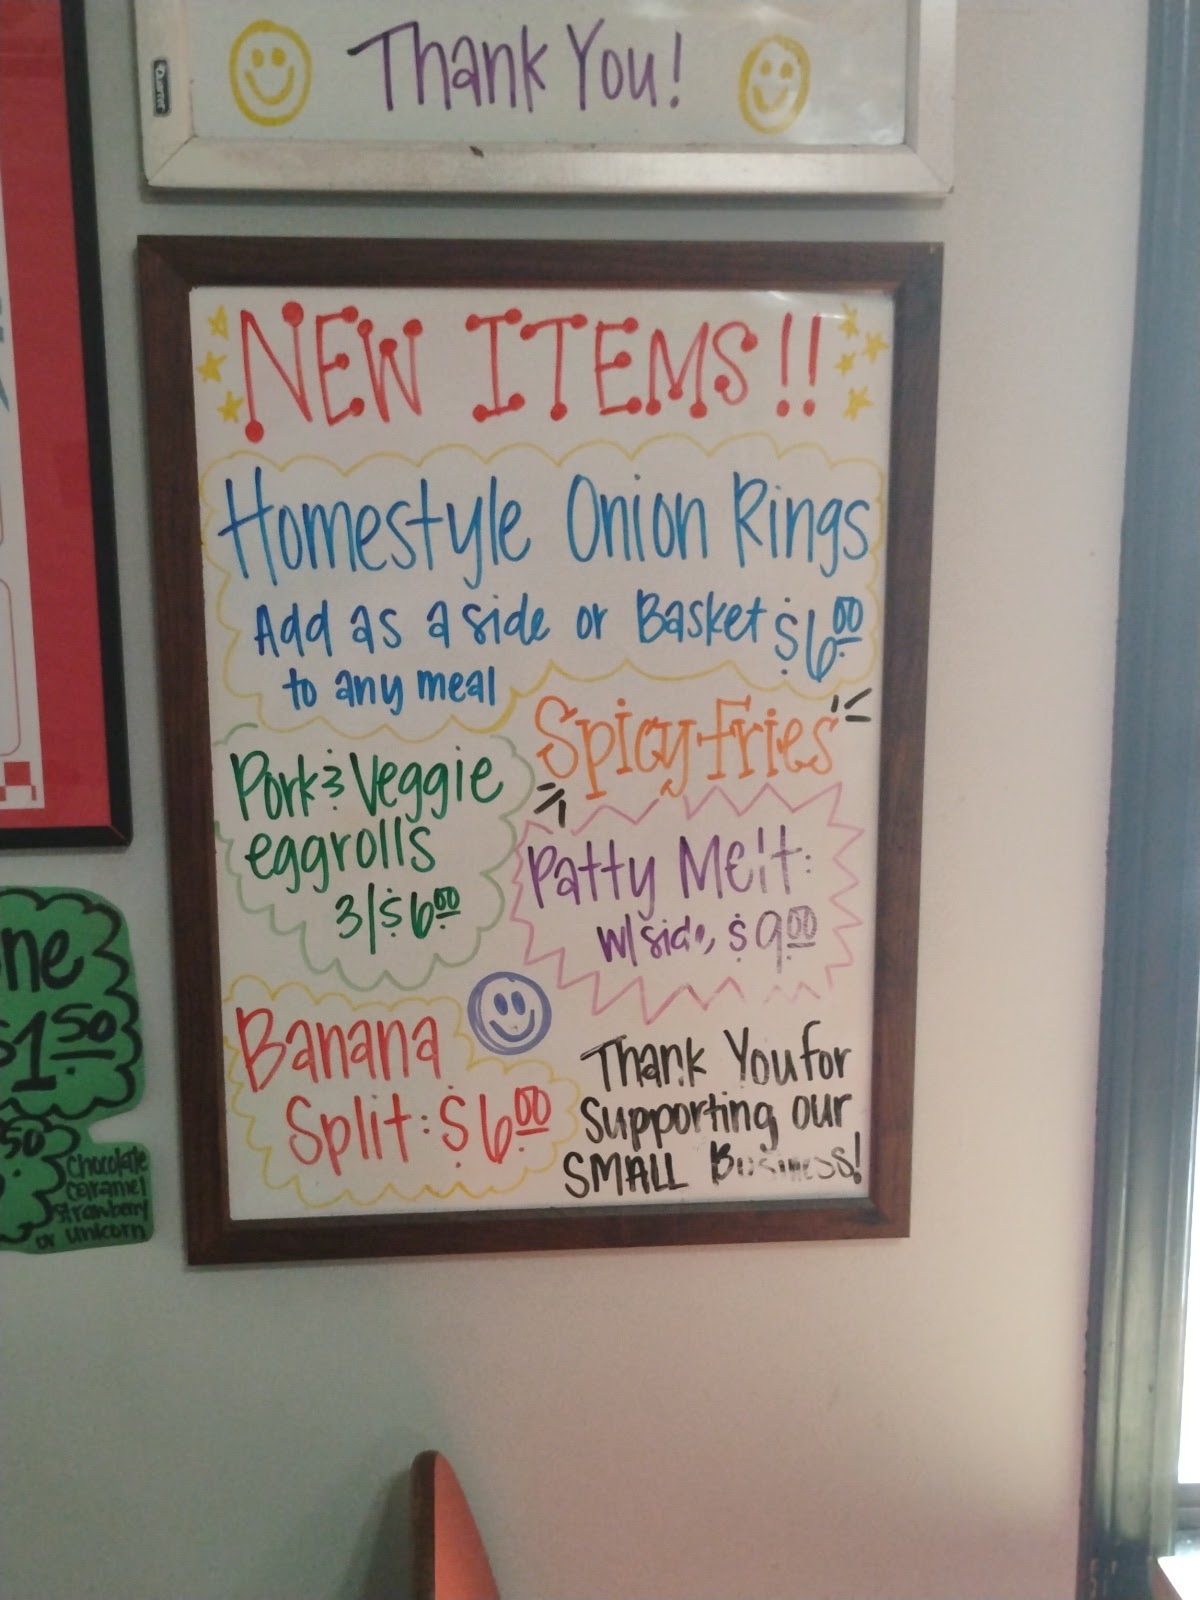 Thank You!
Quartet
NEW ITEMS!!
Homestyle Onion Rings
Add as a side or Basket $6.00
to any meal
Spicy Fries
Pork & Veggie
eggrolls
3/$6.00
Patty Melt:
w/side, $9.00
Banana
Split: $6.00
Thank You for
Supporting our
SMALL Business!
ne
$1.50
50
Chocolate
Caramel
Strawberry
or Unicorn